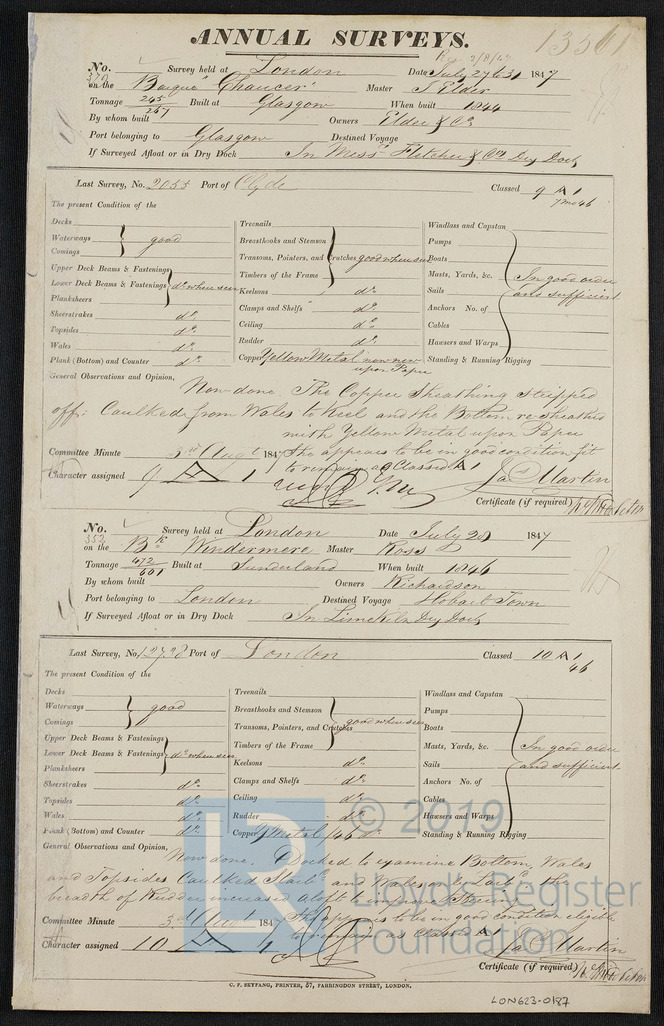 ANNUAL SURVEYS.
13561
No. 372 Survey held at London Date July 27 & 31 1847
on the Barque "Chaucer" Master J Elder
Tonnage 245/267 Built at Glasgow When built 1844
By whom built Owners Elder & Co
Port belonging to Glasgow Destined Voyage
If Surveyed Afloat or in Dry Dock In Messrs Fletcher & Co's Dry Dock
Last Survey, No. 2055 Port of Clyde Classed 9 A 1
7 mo 46
The present Condition of the
Decks
Waterways
Comings
good
Upper Deck Beams & Fastenings
Lower Deck Beams & Fastenings
Planksheers
do where seen
Sheerstrakes do
Topsides do
Wales do
Plank (Bottom) and Counter do
Treenails
Breasthooks and Stemson
Transoms, Pointers, and Crutches
Timbers of the Frame
good where seen
Keelsons do
Clamps and Shelfs do
Ceiling do
Rudder do
Copper Yellow Metal now new
upon Paper
Windlass and Capstan
Pumps
Boats
Masts, Yards, &c.
Sails
Anchors No. of
Cables
Hawsers and Warps
Standing & Running Rigging
In good order
and sufficient
General Observations and Opinion, Now done. The Copper Sheathing stripped
off: Caulked from Wales to Keel and the Bottom re-sheathed
with Yellow Metal upon Paper
Committee Minute 3rd Augt 1847 She appears to be in good condition fit
to remain as Classed A 1
Character assigned 9 A 1
Jas Martin
Certificate (if required)
No. 353 Survey held at London Date July 28 1847
on the Bk Windermere Master Ross
Tonnage 472/601 Built at Sunderland When built 1846
By whom built Owners Richardson
Port belonging to London Destined Voyage Hobart Town
If Surveyed Afloat or in Dry Dock In Limekiln Dry Dock
Last Survey, No. Port of London Classed 10 A 1
46
The present Condition of the
Decks
Waterways
Comings
good
Upper Deck Beams & Fastenings
Lower Deck Beams & Fastenings
Planksheers
do where seen
Sheerstrakes do
Topsides do
Wales do
Plank (Bottom) and Counter do
Treenails
Breasthooks and Stemson
Transoms, Pointers, and Crutches
Timbers of the Frame
good where seen
Keelsons do
Clamps and Shelfs do
Ceiling do
Rudder do
Copper Y Metal /46 do
Windlass and Capstan
Pumps
Boats
Masts, Yards, &c.
Sails
Anchors No. of
Cables
Hawsers and Warps
Standing & Running Rigging
In good order
and sufficient
General Observations and Opinion, Now done. Docked to examine Bottom, Wales
and Topsides Caulked and Wales the
breadth of Rudder increased
Committee Minute 3rd Augt 1847 She appears to be in good condition eligible
to remain as Classed A 1
Character assigned 10 A 1
Jas Martin
Certificate (if required)
C. F. SEYFANG, PRINTER, 57, FARRINGDON STREET, LONDON.
LON623-0187
© 2019
Lloyd's Register
Foundation
LR